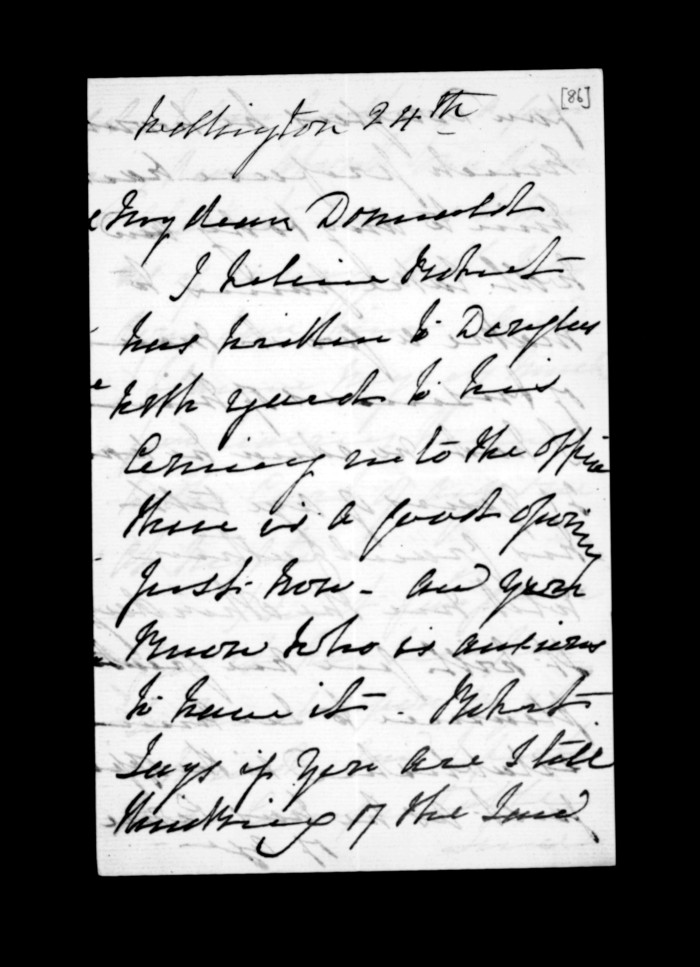 [86]
Wellington 24th
My dear Donald
I believe Robert
has written to Douglas
with regard to his
Coming into the office
there is a good opening
just now - and you
Know who is anxious
to have it. Robert
Says if you are Still
thinking of the Law